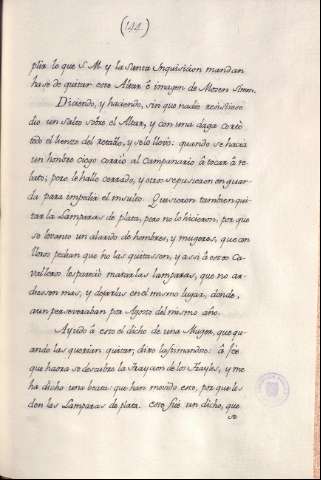 (144.)
plir lo que S. M. y la Santa Inquisicion mandan
ha se de quitar este Altar è imagen de Mosen Simon.
Diciendo, y haciendo, sin que nadie resistiese
dio un salto sobre el Altar, y con una daga cortò
todo el lienzo del retablo, y se lo llevò: quando se hacia
un hombre ciego corriò al campanario à tocar à re
bato; pero le hallò cerrado, y otros se pusieron en guar
da para impedir el insulto. Quisieron tambien qui
tar la Lamparas de plata, pero no lo hicieron, por que
se levanto un alarido de hombres, y mugeres, que con
lloros pedian que no las quitassen, y assi à este Ca
vallero le pareciò matar las lamparas, que no ar
diessen mas, y dejarlas en el mismo lugar, donde,
aun perseveraban por Agosto del mismo año.
Ayudò à esto el dicho de una Muger, que qu
ando las querian quitar, dixo lastimandose: à feè
que haora se descubre la traycion de los Frayles, y me
ha dicho una beata que han movido esto, por que les
den las Lamparas de plata. este fuè un dicho, que
se